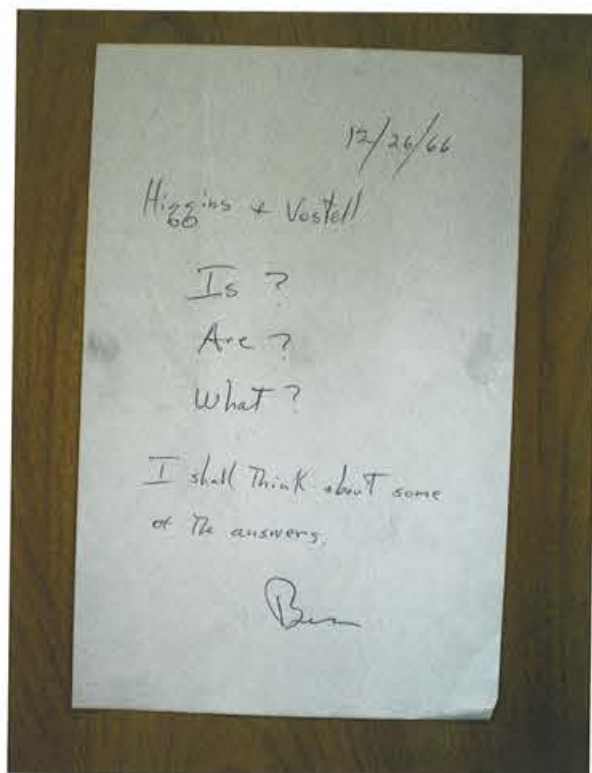 12/26/66
Higgins + Vostell
Is ?
Are ?
What ?
I shall Think about some
of The answers.